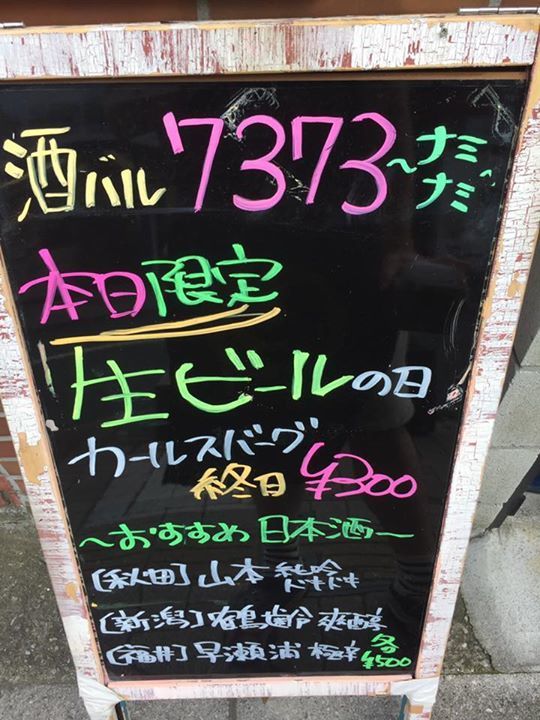 酒バル 7373~ナミナミ~
本日限定
生ビールの日
カールスバーグ
終日 ¥300
~おすすめ 日本酒~
[秋田] 山本 純吟 ドキドキ
[新潟] 鶴齢 爽醇
[福井] 早瀬浦 極辛 各¥500